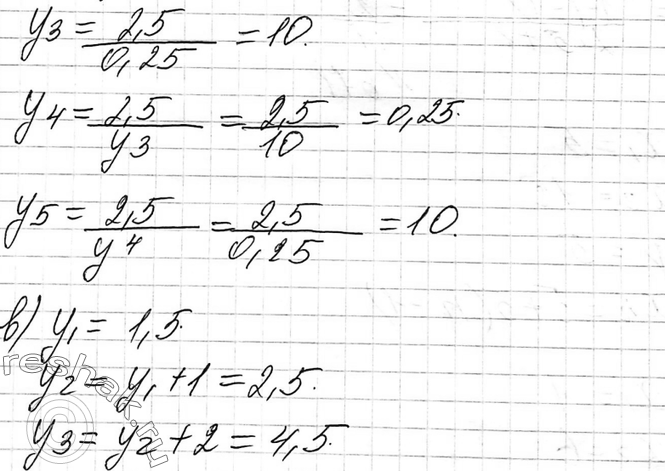 y3 = 2,5/0,25 = 10.
y4 = 2,5/y3 = 2,5/10 = 0,25.
y5 = 2,5/y4 = 2,5/0,25 = 10.
в) y1 = 1,5.
y2 = y1 + 1 = 2,5.
y3 = y2 + 2 = 4,5.
reshak.ru